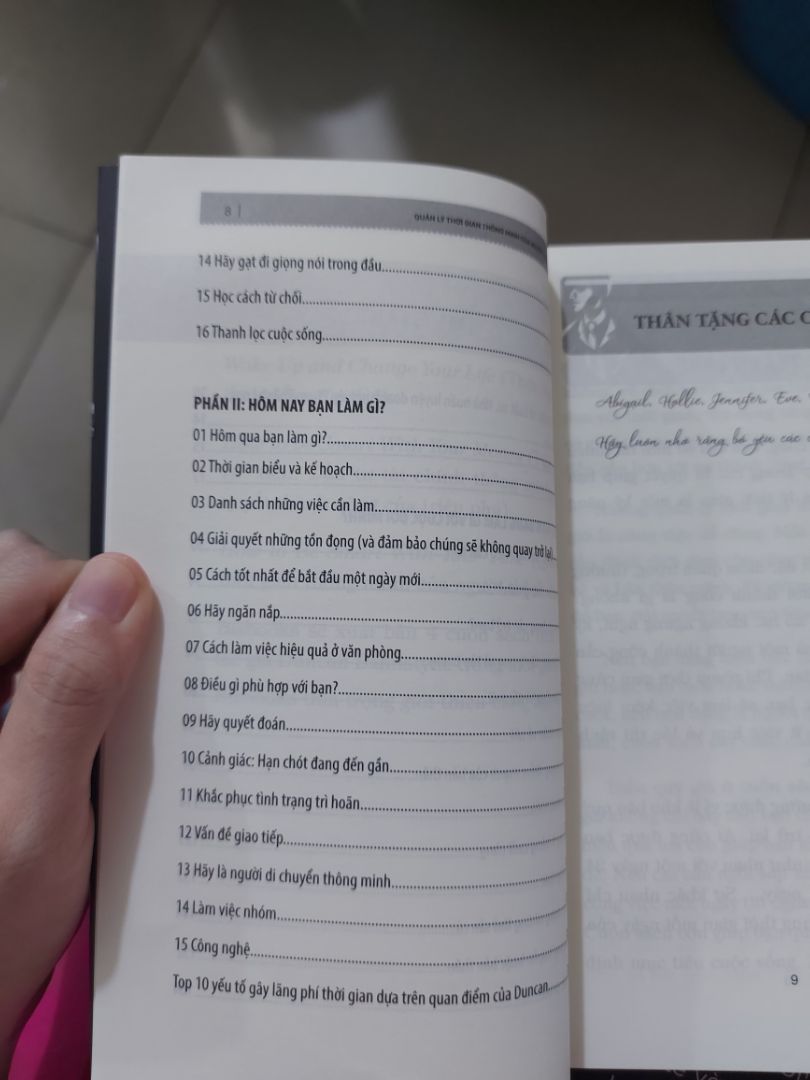 8 |
QUẢN LÝ THỜI GIAN THÔNG MINH CỦA
14 Hãy gạt đi giọng nói trong đầu
15 Học cách từ chối
16 Thanh lọc cuộc sống
PHẦN II: HÔM NAY BẠN LÀM GÌ?
01 Hôm qua bạn làm gì?
02 Thời gian biểu và kế hoạch
03 Danh sách những việc cần làm
04 Giải quyết những tồn đọng (và đảm bảo chúng sẽ không quay trở lại)
05 Cách tốt nhất để bắt đầu một ngày mới
06 Hãy ngăn nắp
07 Cách làm việc hiệu quả ở văn phòng
08 Điều gì phù hợp với bạn?
09 Hãy quyết đoán
10 Cảnh giác: Hạn chót đang đến gần
11 Khắc phục tình trạng trì hoãn
12 Vấn đề giao tiếp
13 Hãy là người di chuyển thông minh
14 Làm việc nhóm
15 Công nghệ
Top 10 yếu tố gây lãng phí thời gian dựa trên quan điểm của Duncan
THÂN TẶNG CÁC C
Abigail, Hollie, Jennifer, Eve,
Hãy luôn nhớ rằng bố yêu các
9